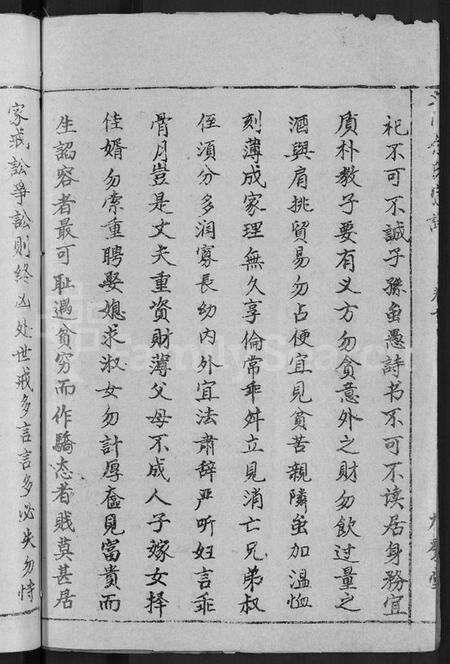 祀不可不誠子孫虽愚詩书不可不读居身務宜
质朴教子要有义方勿貪意外之財勿飲过量之
酒與肩挑貿易勿占便宜見貧苦親隣虽加温恤
刻薄成家理無久享倫常乖舛立見消亡兄弟叔
侄須分多润寡長幼内外宜法肃辞严听妇言乖
骨月豈是丈夫重資財薄父母不成人子嫁女择
佳婿勿索重聘娶媳求淑女勿計厚奩見富貴而
生諂容者最可耻遇貧穷而作驕态者贱莫甚居
家戒訟爭訟則終凶处世戒多言言多必失勿恃